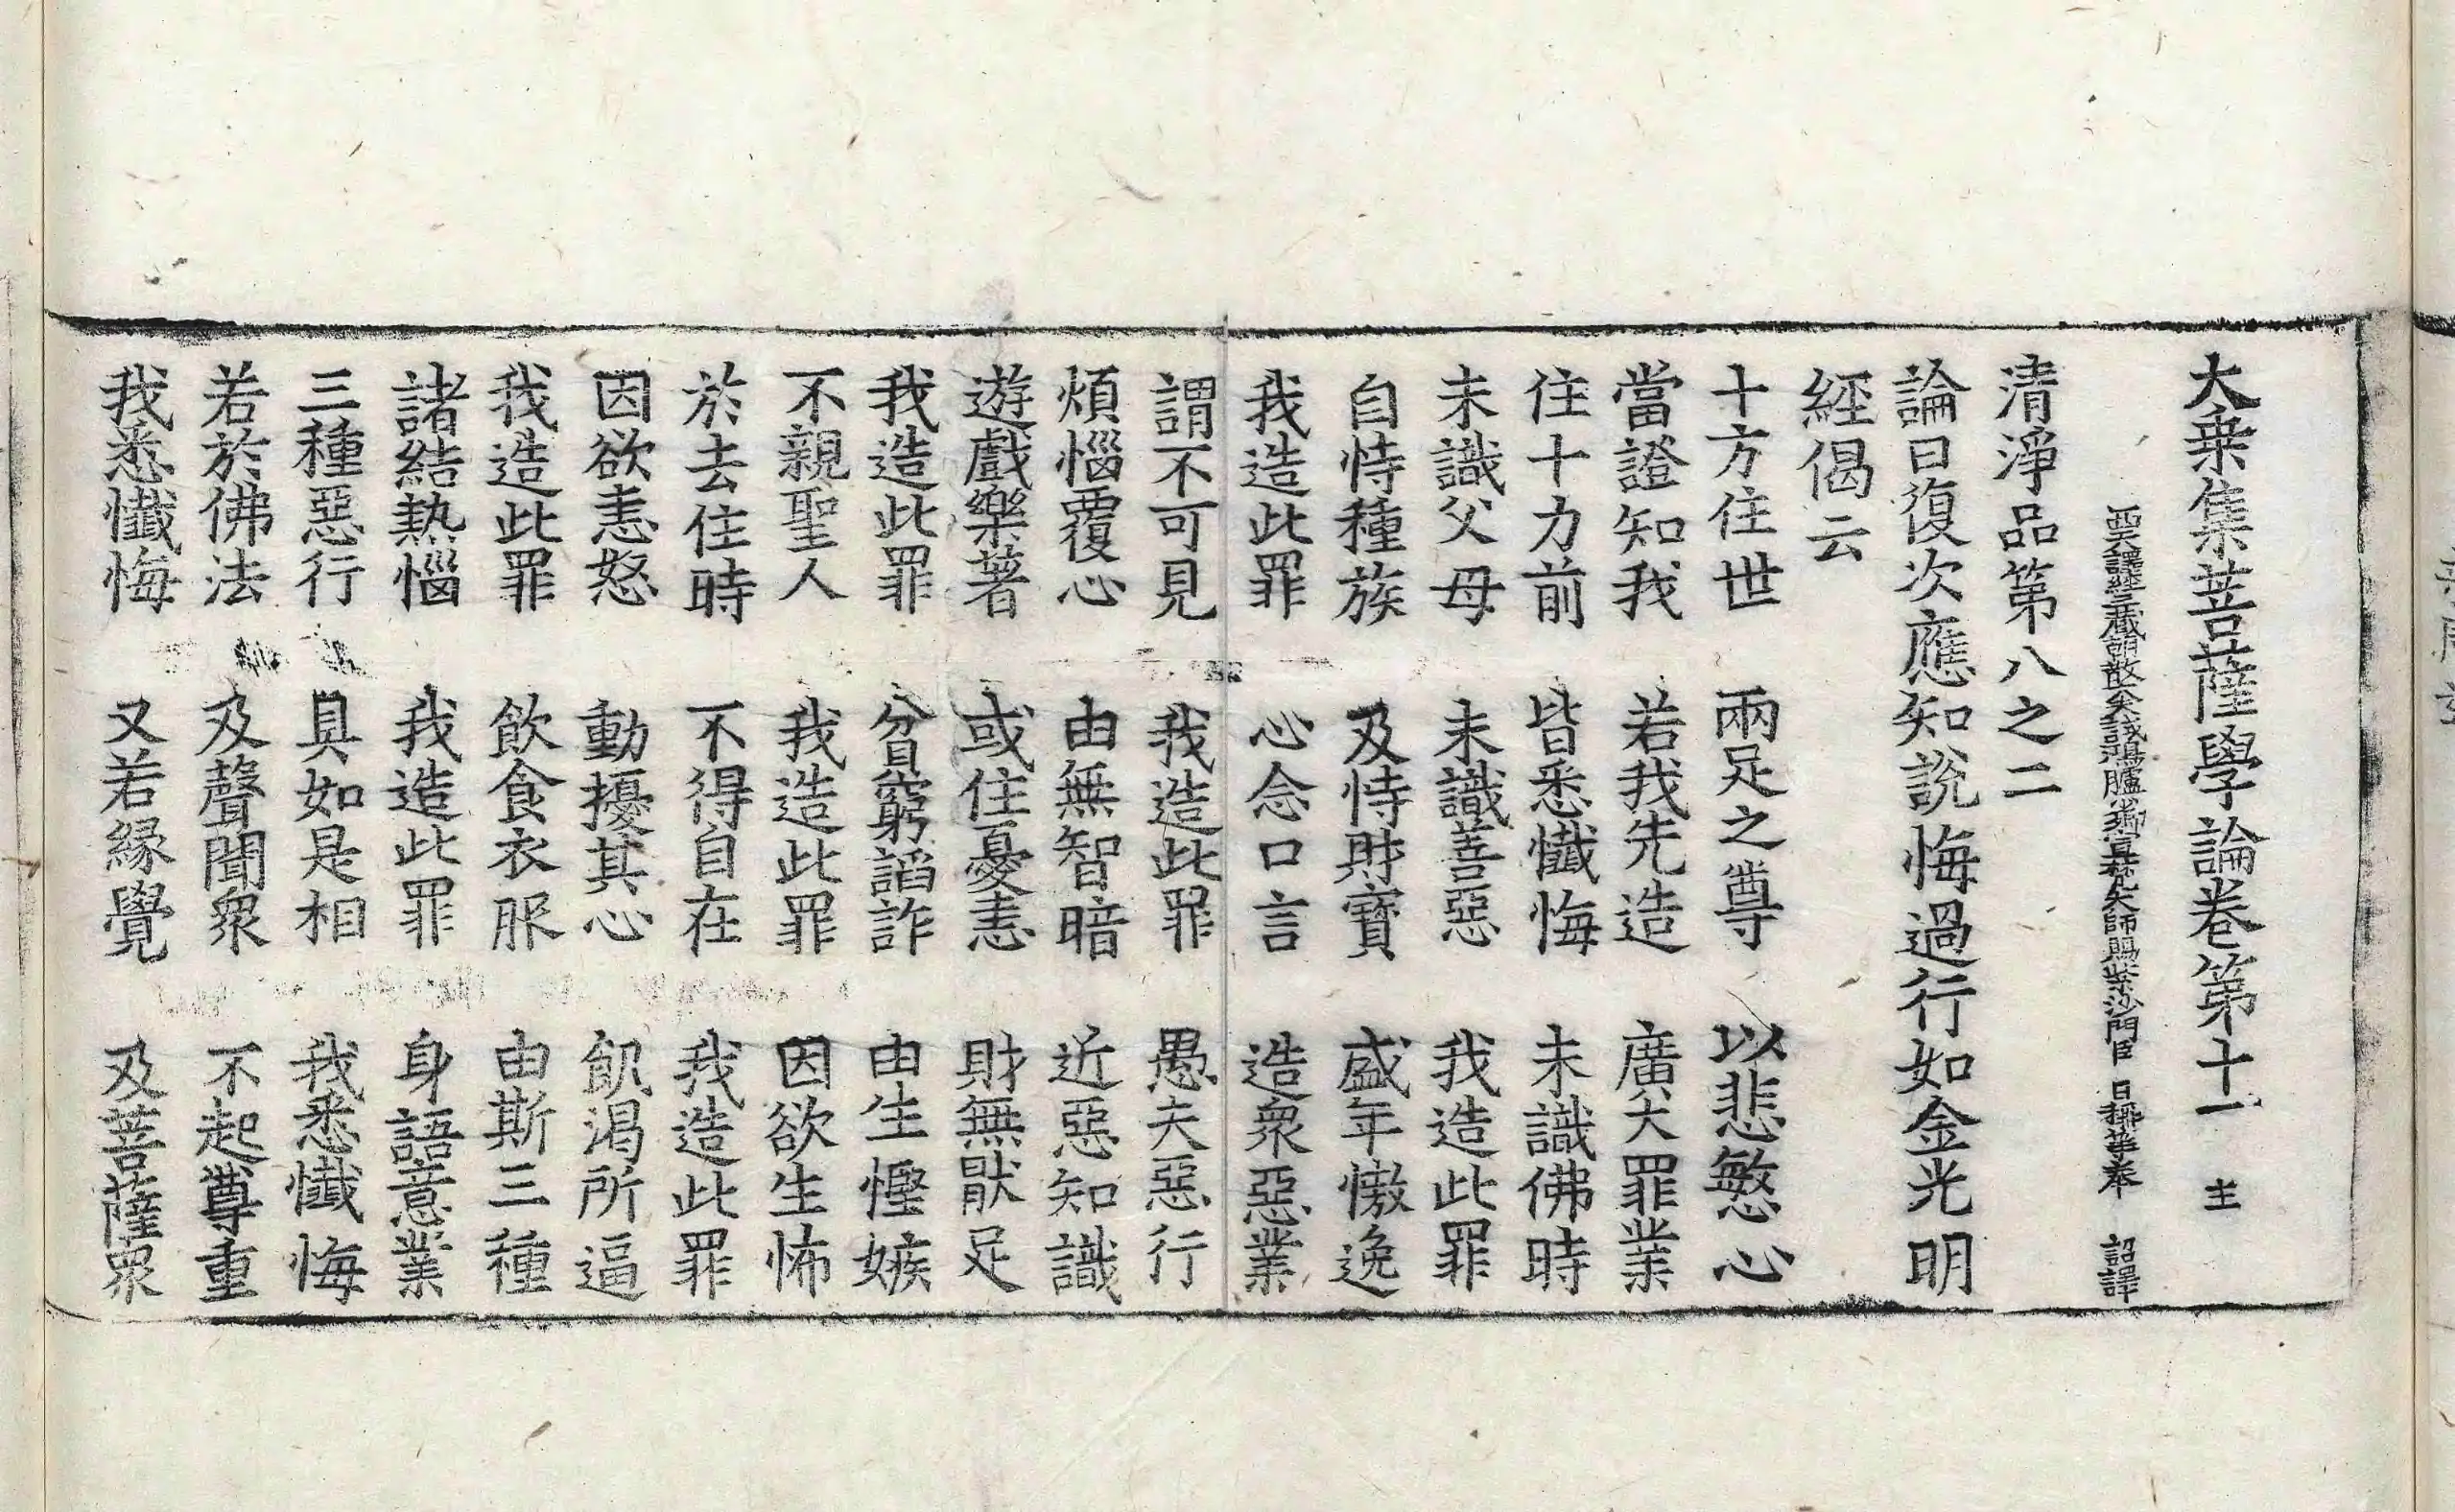 大乗集菩薩學論卷第十一 主
西天譯經三藏朝散大夫試鴻臚少卿宣梵大師賜紫沙門臣 日稱等奉 詔譯
清淨品第八之二
論曰復次應知說悔過行如金光明
經偈云
十方住世 兩足之尊 以悲愍心
當證知我 若我先造 廣大罪業
住十力前 皆悉懺悔 未識佛時
未識父母 未識善惡 我造此罪
自恃種族 及恃財寶 盛年憿逸
我造此罪 心念口言 造衆惡業
謂不可見 我造此罪 愚夫惡行
煩惱覆心 由無智暗 近惡知識
遊戲樂著 或住憂恚 財無猒足
我造此罪 貧窮謟詐 由生慳嫉
不親聖人 我造此罪 因欲生怖
於去住時 不得自在 我造此罪
因欲恚怒 動擾其心 飢渴所逼
我造此罪 飲食衣服 由斯三種
諸結熱惱 我造此罪 身語意業
三種惡行 具如是相 我悉懺悔
若於佛法 及聲聞衆 不起尊重
我悉懺悔 又若縁覺 及菩薩衆